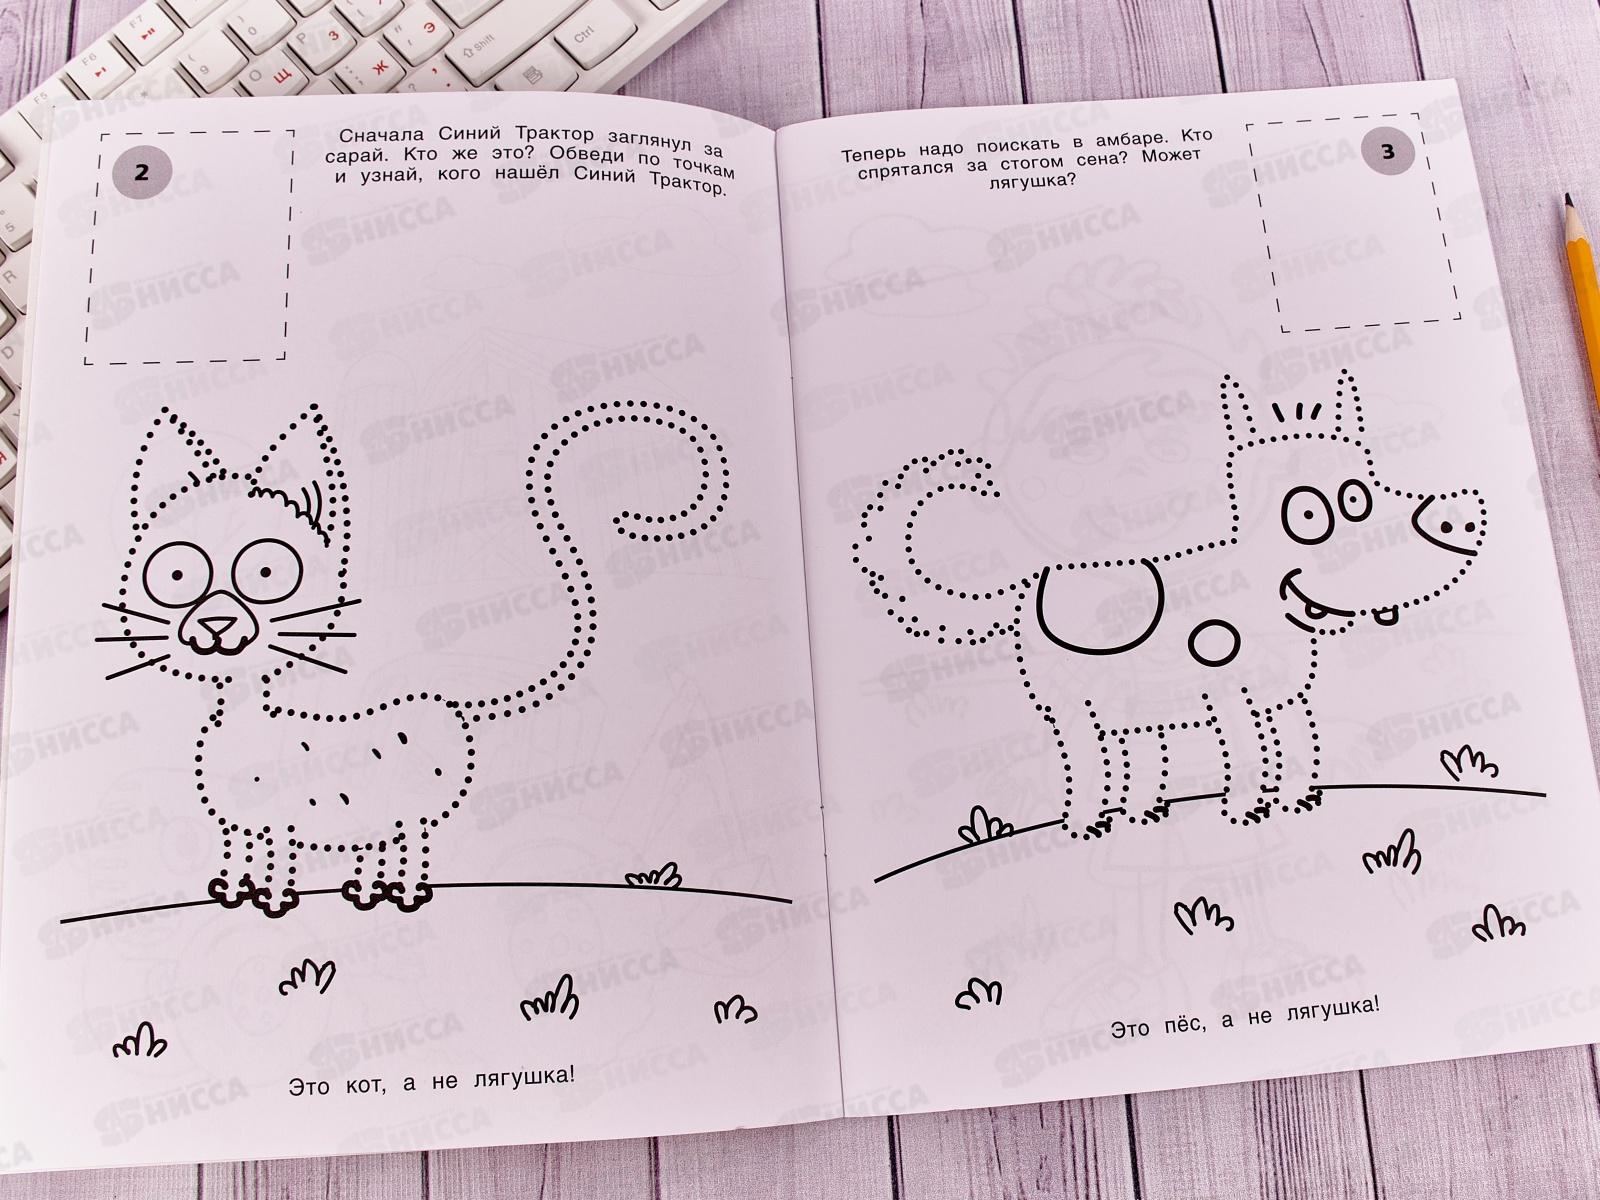 2
Сначала Синий Трактор заглянул за
сарай. Кто же это? Обведи по точкам
и узнай, кого нашёл Синий Трактор.
Это кот, а не лягушка!
3
Теперь надо поискать в амбаре. Кто
спрятался за стогом сена? Может
лягушка?
Это пёс, а не лягушка!
F5
F6
F7
Shift
Ctrl
НИССА